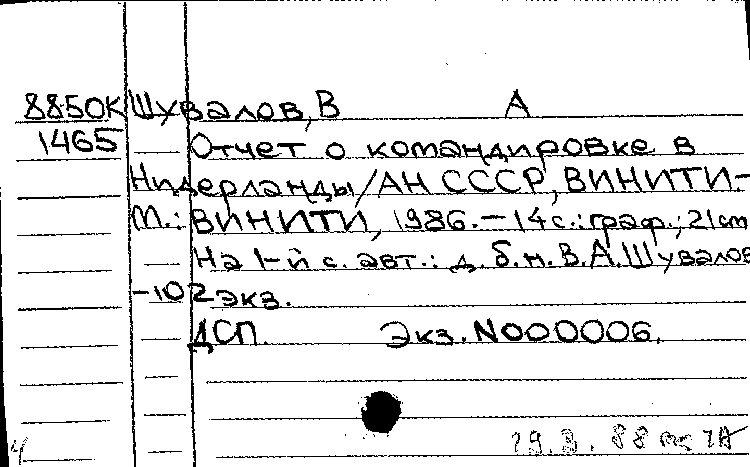 8850К Шувалов, В А
1465 Отчет о командировке в
Нидерланды/АН СССР, ВИНИТИ-
М.: ВИНИТИ, 1986. – 14 с.: граф.; 21 cm
На 1-й с. авт.: д. б. н. В. А. Шувалов
-102 экз.
ДСП. Экз. N000006.